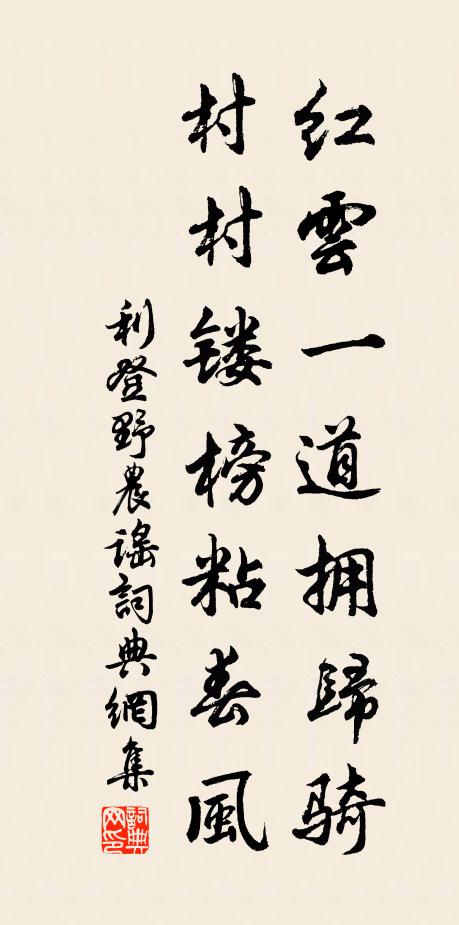 红雲一道拥歸骑
村村镂榜粘春風
利登野農謡詞典網集
詞典网印